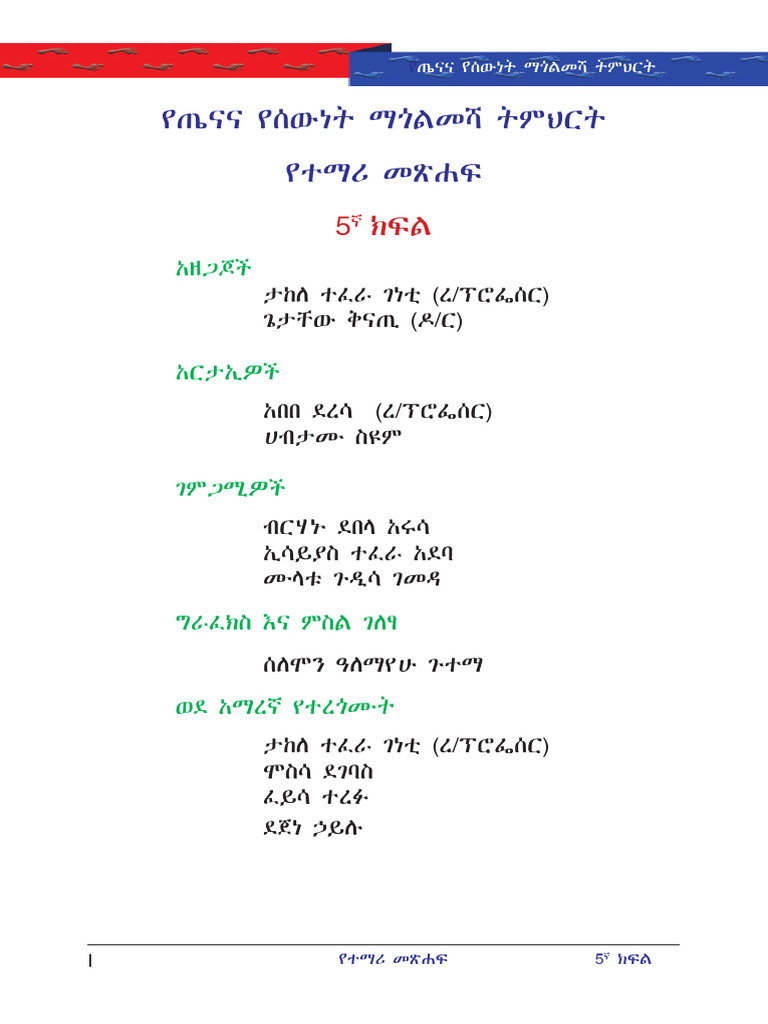 ጤናና የሰውነት ማጎልመሻ ትምህርት
የጤናና የሰውነት ማጎልመሻ ትምህርት
የተማሪ መጽሐፍ
5ኛ ክፍል
አዘጋጆች
ታከለ ተፈራ ገነቲ (ረ/ፕሮፌሰር)
ጌታቸው ቅናጢ (ዶ/ር)
አርታኢዎች
አበበ ደረሳ (ረ/ፕሮፌሰር)
ሀብታሙ ስዩም
ገምጋሚዎች
ብርሃኑ ደበላ አሩሳ
ኢሳይያስ ተፈራ አደባ
ሙላቱ ጉዲሳ ገመዳ
ግራፈክስ እና ምስል ገለፃ
ሰለሞን ዓለማየሁ ጉተማ
ወደ አማረኛ የተረጎሙት
ታከለ ተፈራ ገነቲ (ረ/ፕሮፌሰር)
ሞስሳ ደገባስ
ፈይሳ ተረፉ
ደጀነ ኃይሉ
I የተማሪ መጽሐፍ 5ኛ ክፍል